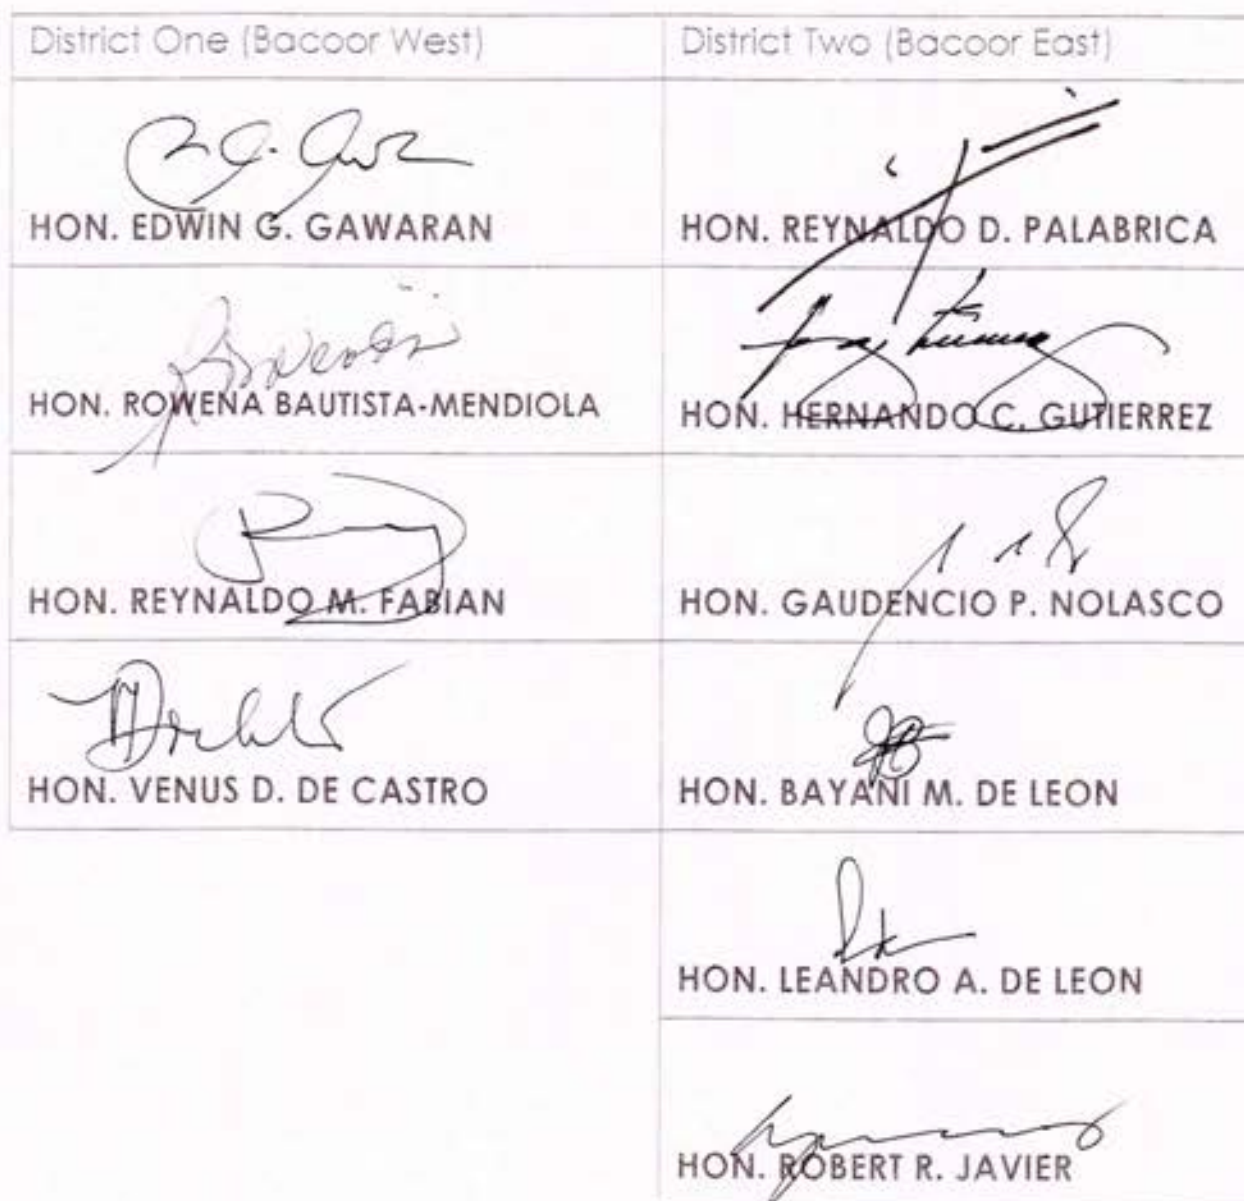 District One (Bacoor West)
District Two (Bacoor East)
HON. EDWIN G. GAWARAN
HON. REYNALDO D. PALABRICA
HON. ROWENA BAUTISTA-MENDIOLA
HON. HERNANDO C. GUTIERREZ
HON. REYNALDO M. FABIAN
HON. GAUDENCIO P. NOLASCO
HON. VENUS D. DE CASTRO
HON. BAYANI M. DE LEON
HON. LEANDRO A. DE LEON
HON. ROBERT R. JAVIER